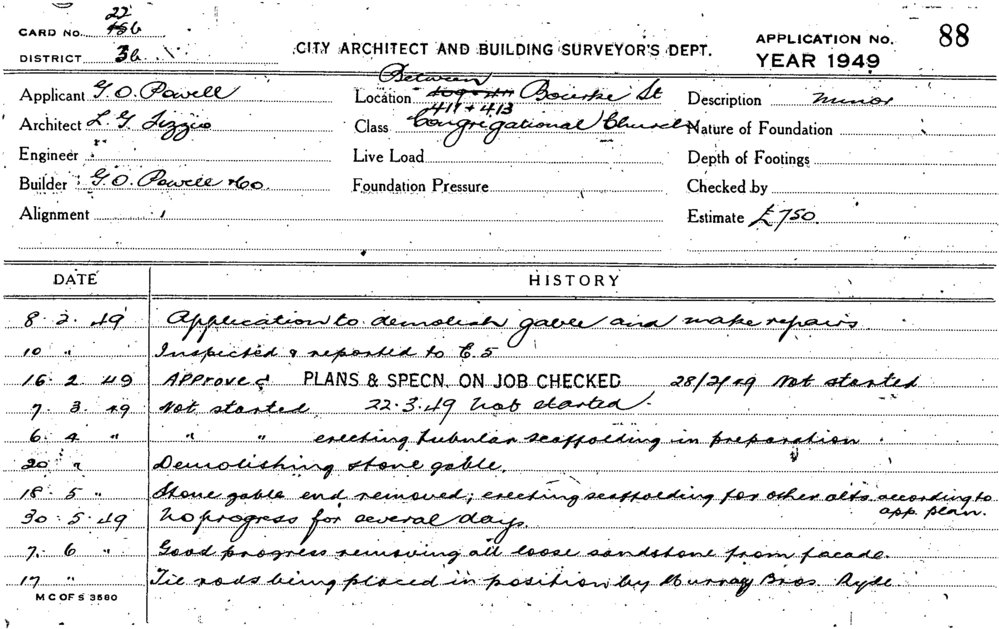 22
CARD NO. 456
DISTRICT 3b
CITY ARCHITECT AND BUILDING SURVEYOR'S DEPT.
APPLICATION NO. 88
YEAR 1949
Applicant G. O. Powell
Architect L. G.
Engineer
Builder G. O. Powell & Co.
Alignment
Between
Location Bourke St
411 + 413
Class Congregational Church
Live Load
Foundation Pressure
Description minor
Nature of Foundation
Depth of Footings
Checked by
Estimate £750.
DATE HISTORY
8. 2. 49 Application to demolish gable and make repairs.
10 " Inspected & reported to E.5
16. 2. 49 Approved PLANS & SPECN. ON JOB CHECKED 28/2/49 Not started
7. 3. 49 Not started 22.3.49 Not started.
6. 4 " " " erecting tubular scaffolding in preparation.
20 " Demolishing stone gable.
18. 5 " Stone gable end removed; erecting scaffolding for other alts. according to
app. plan.
30. 5. 49 No progress for several days.
7. 6 " Good progress removing all loose sandstone from facade.
17 " Tie rods being placed in position by Murray Bros. Ryde.
M C OF S 3580